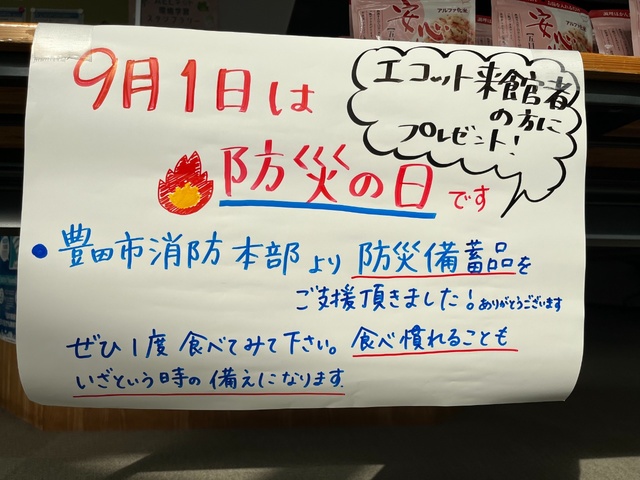 安心
アルファ化米
安心
エコット来館者
の方に
プレゼント!
9月1日は
防災の日です
・豊田市消防本部より防災備蓄品を
ご支援頂きました!ありがとうございます
ぜひ1度食べてみて下さい。食べ慣れることも
いざという時の備えになります.